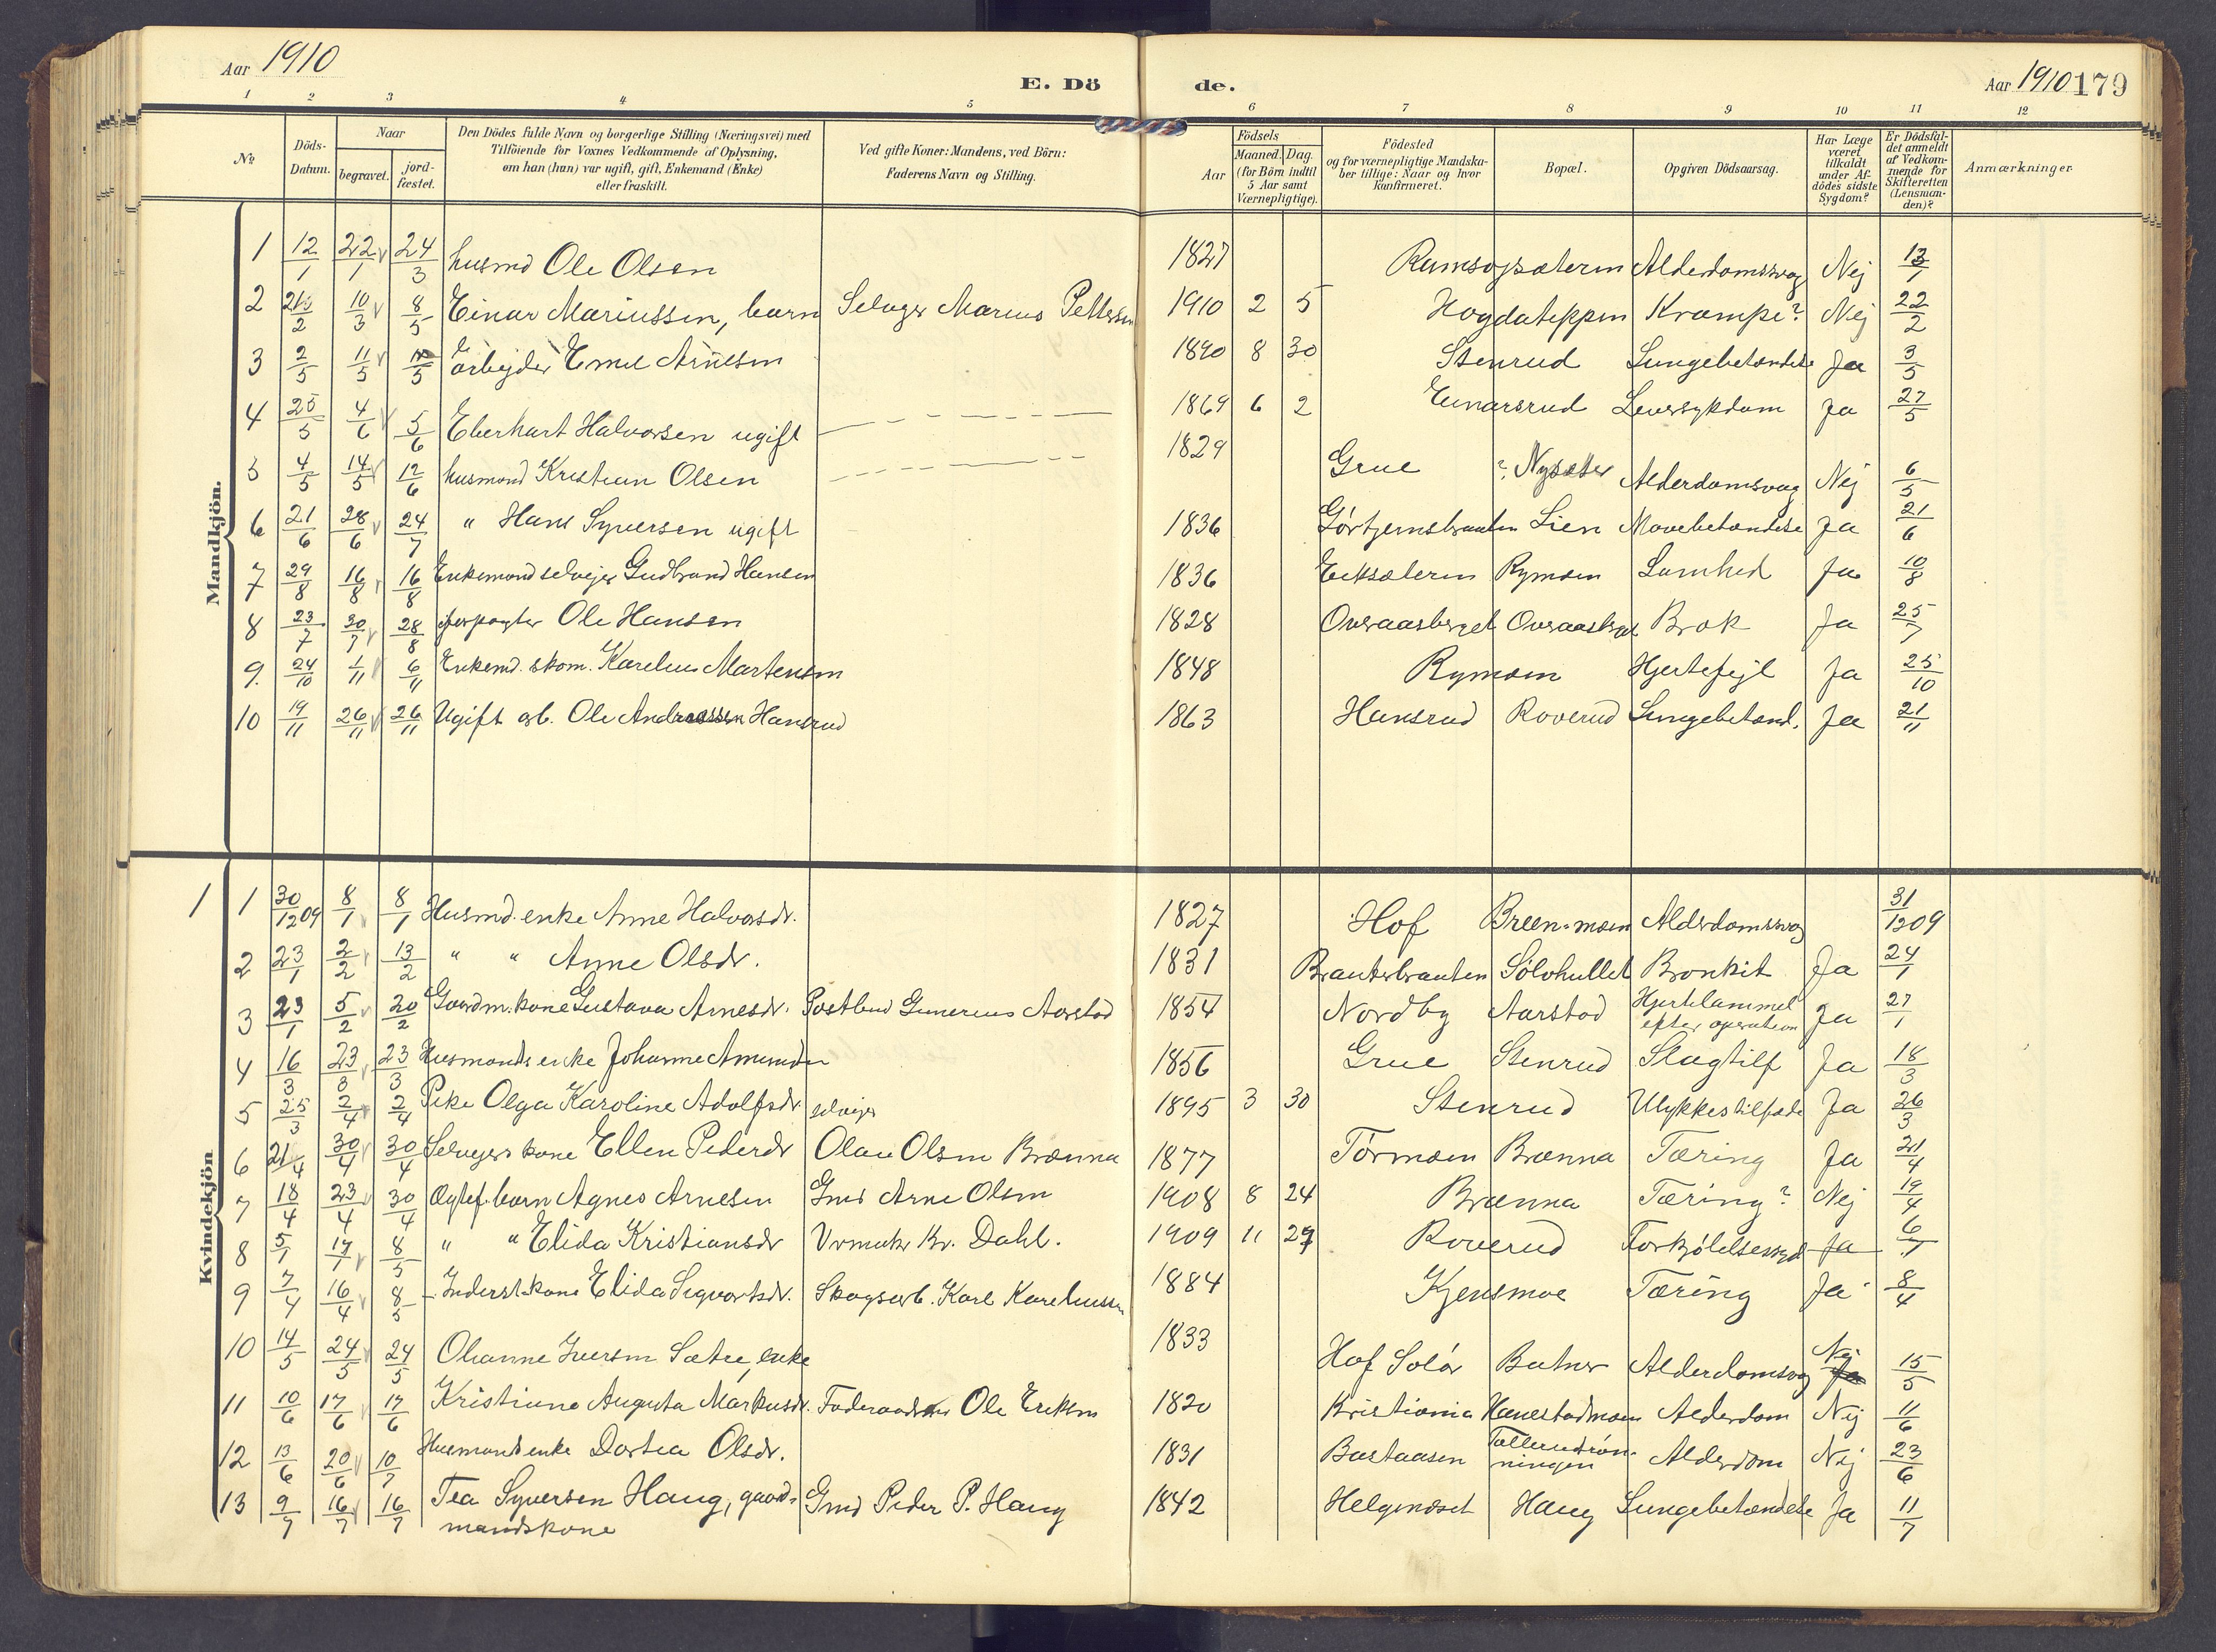 Aar 1910
E. Dö de.
Aar 1910 179
1 2 3 4 5 6 7 8 9 10 11 12
No
Döds-
Datum.
Naar
begravet.
jord-
fæstet.
Den Dödes fulde Navn og borgerlige Stilling (Næringsvei) med
Tilföiende for Voxnes Vedkommende af Oplysning,
om han (hun) var ugift, gift, Enkemand (Enke)
eller fraskilt.
Ved gifte Koner: Mandens, ved Börn:
Faderens Navn og Stilling.
Födsels
Aar
Maaned. Dag.
(for Börn indtil
5 Aar samt
Værnepligtige).
Födested
og for værnepligtige Mandska-
ber tillige: Naar og hvor
konfirmeret.
Bopæl.
Opgiven Dödsaarsag.
Har Læge
været
tilkaldt
under Af-
dödes sidste
Sygdom?
Er Dödsfal-
det anmeldt
af Vedkom-
mende for
Skifteretten
(Lensman-
den)?
Anmærkninger.
Mandkjön.
1 12/1 22/1 24/3 husmd Ole Olsen 1827 Alderdomssvag Nej 13/1
2 10/3 8/5 Einar Mariussen, barn Selveger Marius Pettersen 1910 2 5 Krampe? Nej 22/2
3 2/5 11/5 arbejder Emil Arnesen 1890 8 30 Stenrud Lungebetændelse Ja 3/5
4 25/5 4/6 5/6 Eberhart Halvorsen ugift 1869 6 2 Einarsrud Leversykdom Ja 27/5
5 4/5 14/5 12/6 husmand Kristian Olsen 1829 Grue ? Nysæter Alderdomsvag Nej 6/5
6 21/6 28/6 24/7 " Hans Syversen ugift 1836 Lien Mavebetændelse Ja 21/6
7 29/8 16/8 16/8 Enkemand selvejer Gudbrand Hansen 1836 Rymoen Lamhed Ja 10/8
8 23/7 30/7 28/8 forpagter Ole Hansen 1828 Overaasberget Overaasberget Brok Ja 25/7
9. 24/10 1/11 6/11 Enkemd. skom. Karelius Martensen 1848 Rymoen Hjertefejl Ja 25/10
10 19/11 26/11 26/11 Ugift arb. Ole Andreassen Hansrud 1863 Hansrud Roverud Lungebetænd. Ja 21/11
Kvindekjön
1 1 30/12 09 8/1 8/1 Husmd. enke Anne Halvorsdr. 1827 Hof Breen-moen Alderdomssvag 31/12 09
2 23/1 2/2 13/2 " " Anne Olsdr. 1831 Branterbranten Sölvhullet Bronkit Ja 24/1
3 23/1 5/2 20/2 Gaardm. kone Gustava Arnesdr. Postbud Gunerius Aarstad 1854 Nordby Aarstad Hjertelammel
efter operation Ja 27/1
4 16/3 23/3 23/3 Husmands enke Johanne Amundsdr 1856 Grue Stenrud Slagtilf Ja 18/3
5 25/3 2/4 2/4 Pike Olga Karoline Adolfsdr selvejer 1895 3 30 Stenrud Ulykkestilfælde Ja 26/3
6 21/4 30/4 30/4 Selvejers kone Ellen Pedersdr Olau Olsen Brænna 1877 Tørmoen Brænna Tæring Ja 21/4
7 18/4 23/4 30/4 Ægtef. barn Agnes Arnesen Gmd Arne Olsen 1908 8 24 Brænna Tæring? Nej 19/4
8 5/1 17/1 8/5 " " Elida Kristiansdr Urmaker Kr. Dahl. 1909 11 29 Roverud Forkjølelsessygd Ja 6/1
9 7/4 16/4 8/5 Inderst. kone Elida Sigvartsdr. Skogsarb. Karl Kareliussen 1884 Kjensmoe Tæring Ja 8/4
10 14/5 24/5 24/5 Oleanne Iversen Sætre, enke 1833 Hof Solör Butner Alderdomsvag Nej 15/5
11 10/6 17/6 17/6 Kristiane Augusta Markusdr. Føderaadsm Ole Eriksen 1820 Kristiania Hanestadmoen Alderdom Nej 11/6
12 13/6 20/6 10/7 Husmandsenke Dortea Olsdr. 1831 Bastaasen Tallerudrøn-
ningen Alderdom Nej 23/6
13 9/7 16/7 16/7 Tea Syversen Haug, gaard-
mandskone Gmd Peder P. Haug 1842 Helgenæset Haug Lungebetændelse Ja 11/7